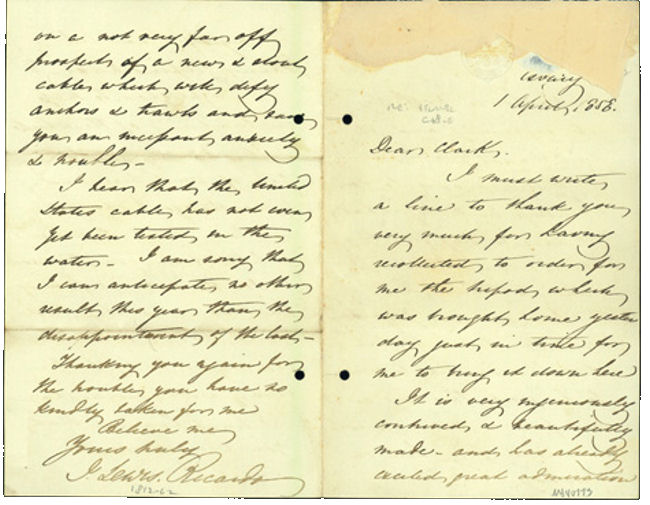 1 April 1858.
Dear Clark,
I must write
a line to thank you
very much for having
recollected to order for
me the tripod which
was brought home yester
day just in time for
me to bring it down here
It is very ingeniously
contrived & beautifully
made - and has already
excited great admiration
on a not very far off
prospect of a new & stout
cable which will defy
anchors & trawls and save
you an incessant anxiety
& trouble -
I hear that the United
States cable has not even
yet been tested in the
water - I am sorry that
I can anticipate no other
result this year than the
disappointment of the last -
Thanking you again for
the trouble you have so
kindly taken for me
Believe me
Yours truly
J. Lewis Ricardo
1812-62